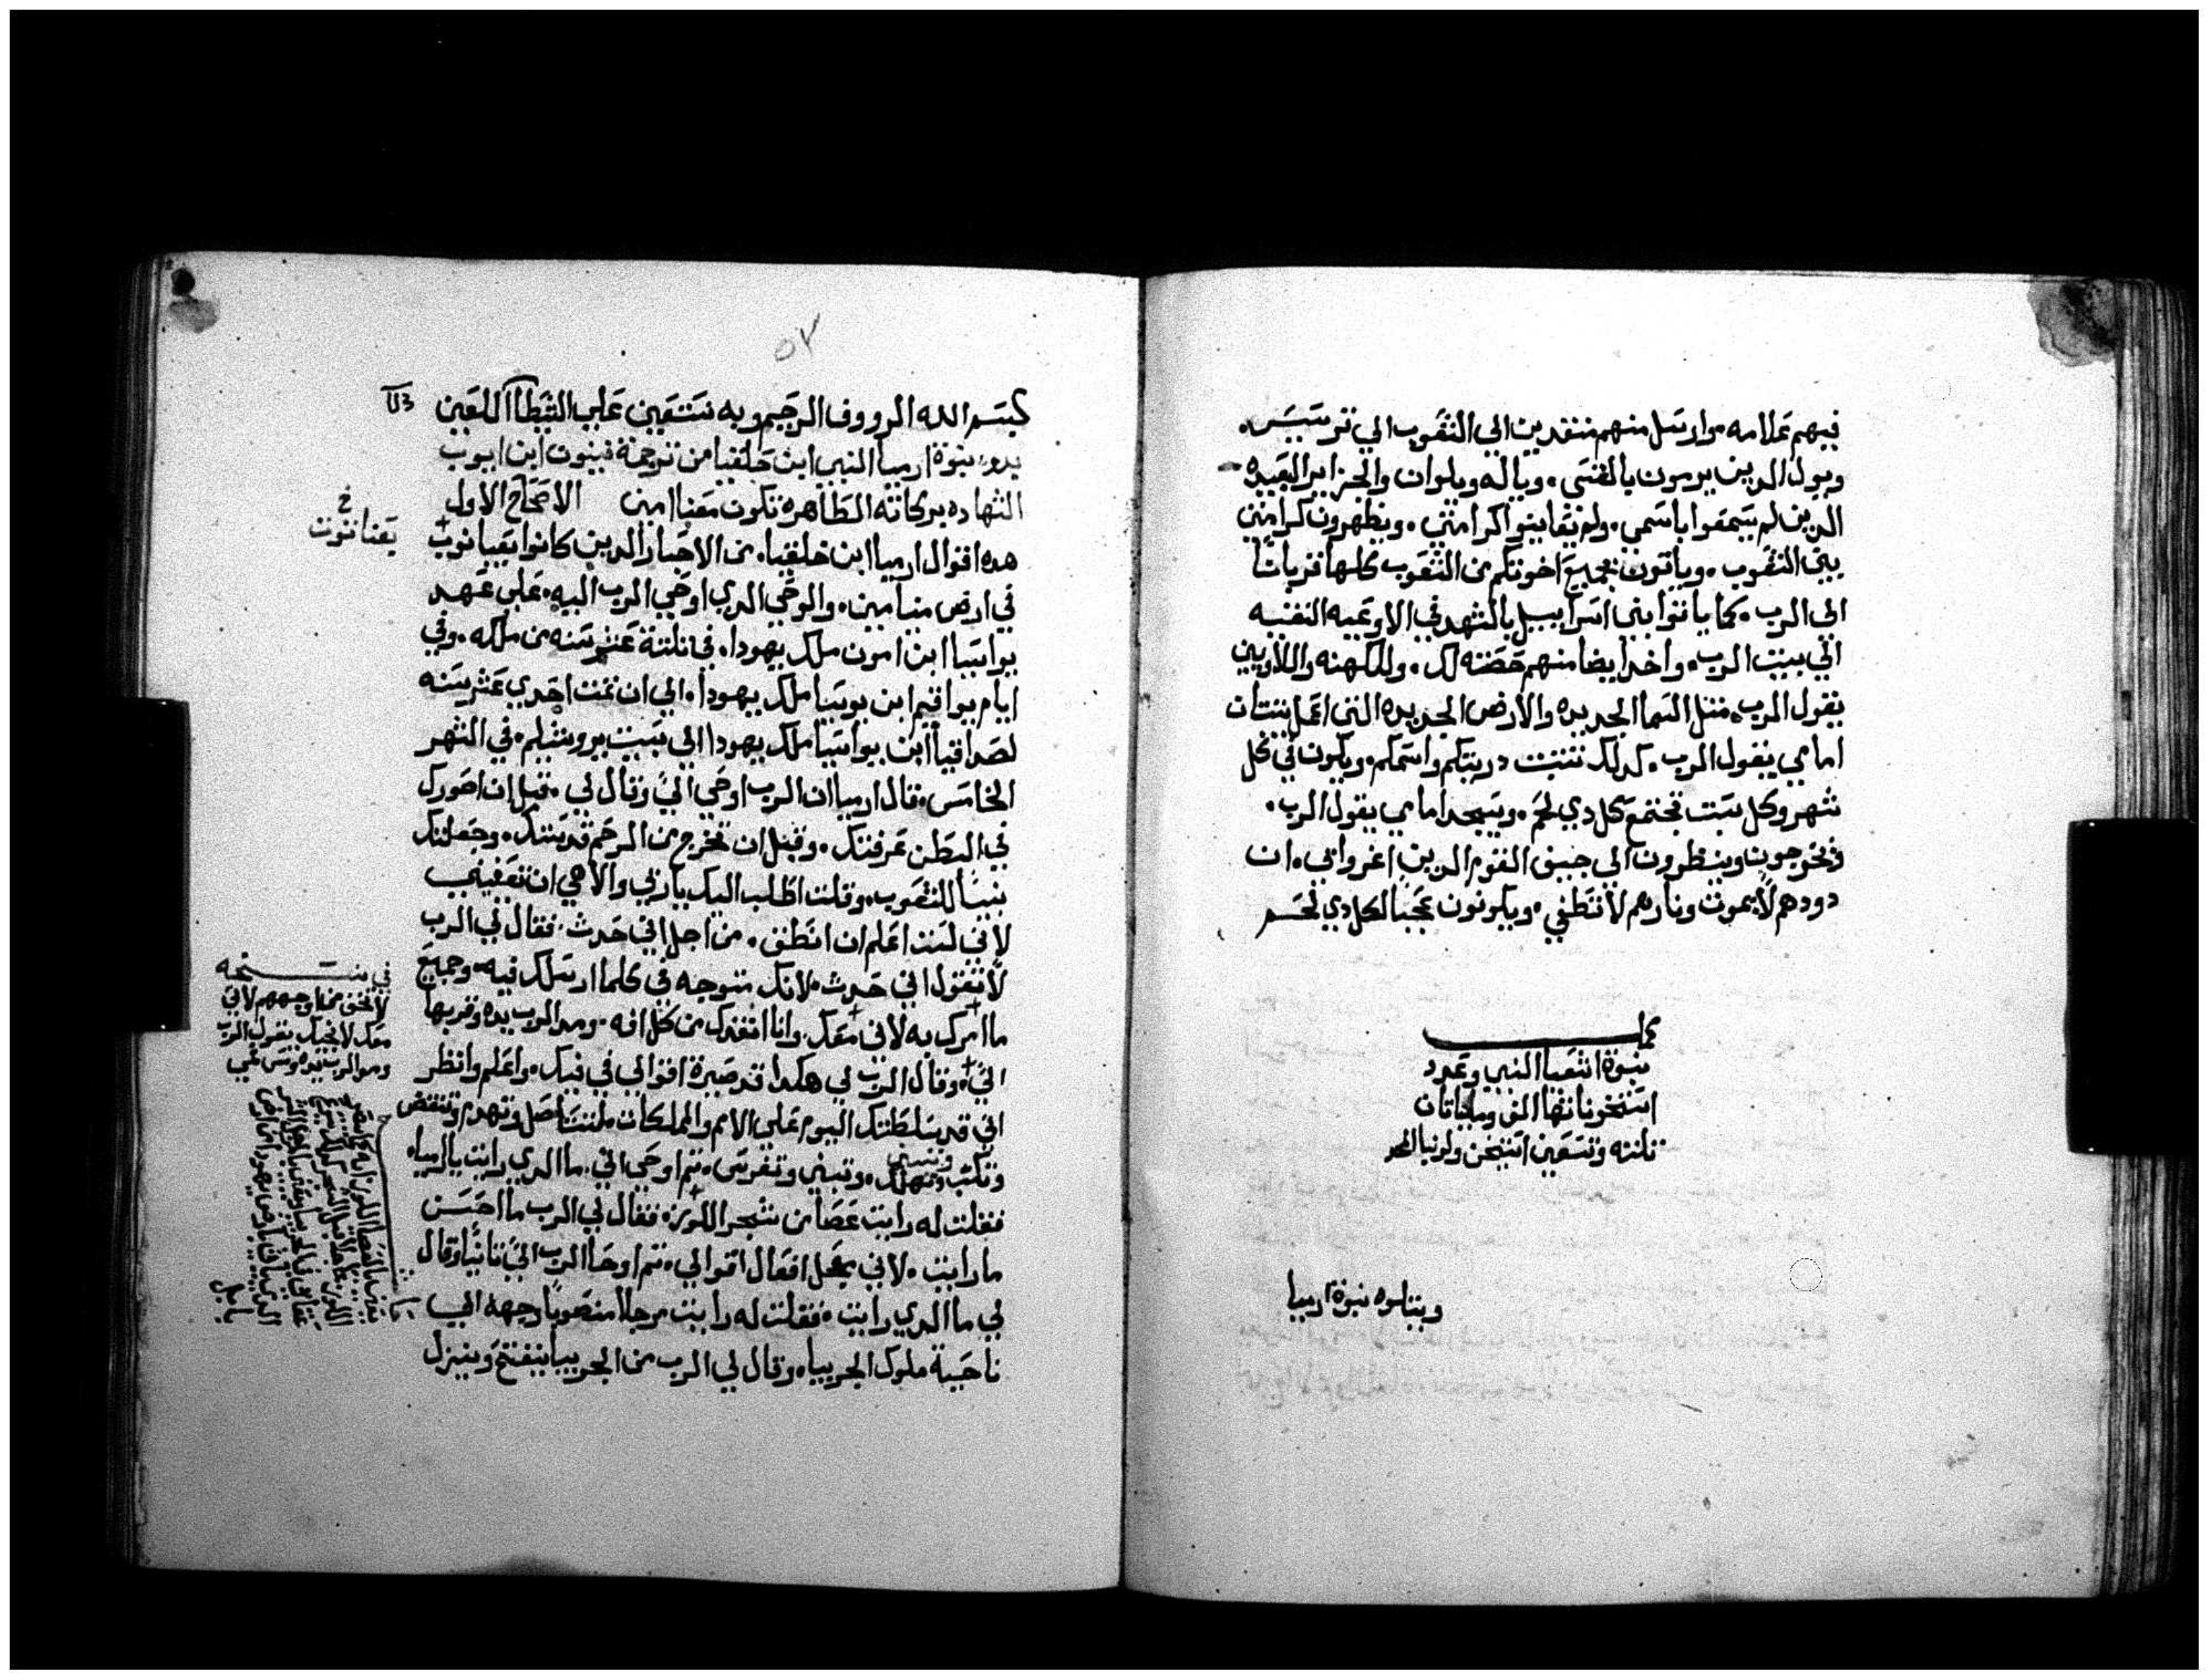 فيهم علامه وارسل منهم منقدين الي الشعوب الي ترسيس.
وبول الدين يرمون بالقسي. وياله ويلوان والجزاير البعيده
الدين لم يسمعوا باسمي. ولم يعاينوا كرامتي. ويظهرون كرامتي
بين الشعوب. وياتون بجميع اخوتكم من الشعوب كلها قربانا
الي الرب. كما ياتوا بني اسراييل بالشهد في الاوعيه النقيه
الي بيت الرب. واخد ايضا منهم حصته لك. وللكهنه واللاويين
يقول الرب. متل السما الجديده والارض الجديده التي اعمل يتبتان
امامي يقول الرب. كدلك تتبت دريتكم واسمكم. ويكون في كل
شهر وكل سبت تجتمع كل دي لحم. ويسجد امامي يقول الرب.
فتخرجون وينظرون الي جيف القوم الدين اغروا بي. ان
دودهم لا يموت ونارهم لا تنطفي. ويكونون عجبا لكل دي لحم
كملت
نبوة اشعيا النبي وعدد
استيخوناتها الفي وماياتان
تلته وتسعين استيخن ولربنا المجد
ويتلوه نبوة ارميا
٥٧
بسم الله الرووف الرحيم وبه نستعين علي الشيطان اللعين
بدو نبوة ارميا النبي ابن حلقيا من ترجمة فينون ابن ايوب
الشهاده بركاته الطاهره تكون معنا امين الاصحاح الاول
هده اقوال ارميا ابن خلقيا. من الاحبار الدين كانوا بعياتوب
في ارض منيامين. والوحي الدي اوحي الرب اليه. علي عهد
يواسيا ابن امون ملك يهودا. في تلتة عشر سنه من ملكه. وفي
ايام يواقيم ابن يوسيا ملك يهودا. الي ان تمت احدي عشر سنه
لصداقيا ابن يواسيا ملك يهودا الي سبيت يروشليم. في الشهر
الخامس. قال ارميا ان الرب اوحي الي وقال لي. قبل ان اصورك
في البطن عرفتك. وقبل ان تخرج من الرحم قدستك. وجعلتك
نبيا للشعوب. وقلت اطلب اليك يارب والاهي ان تعفيني
لاني لست اعلم ان انطق. من اجل اني حدث. فقال لي الرب
لا تقول اني حدث. لانك متوجه في كلما ارسلك فيه. وجميع
ما امرك به لاني معك. وانا انقدك من كل افه. ومد الرب يده وقربها
الي. وقال الرب لي هكدا قد صيرة اقوالي في فيك. واعلم وانظر
اني قد سلطتك اليوم علي الامم والمملكات. لتستاصل وتهدم وتنقض
وتكب وتهلك. وتبني وتغرس. تم اوحي الي. ما الدي رايت يا ارميا.
فقلت له رايت عصا من شجر اللوز. فقال لي الرب ما احسن
ما رايت. لاني معجل افعال اقوالي. تم اوحا الرب الي تانيا وقال
لي ما الدي رايت. فقلت له رايت مرجلا منصوبا وجهه الي
ناحية ملوك الجربيا. وقال لي الرب من الجربيا ينفتح وينزل
خ
بعناتوت
في نسخه
لا تخف من اوجههم لاني
معك لانجيك يقول الرب
ومد الرب يده ومس فمي
بابل